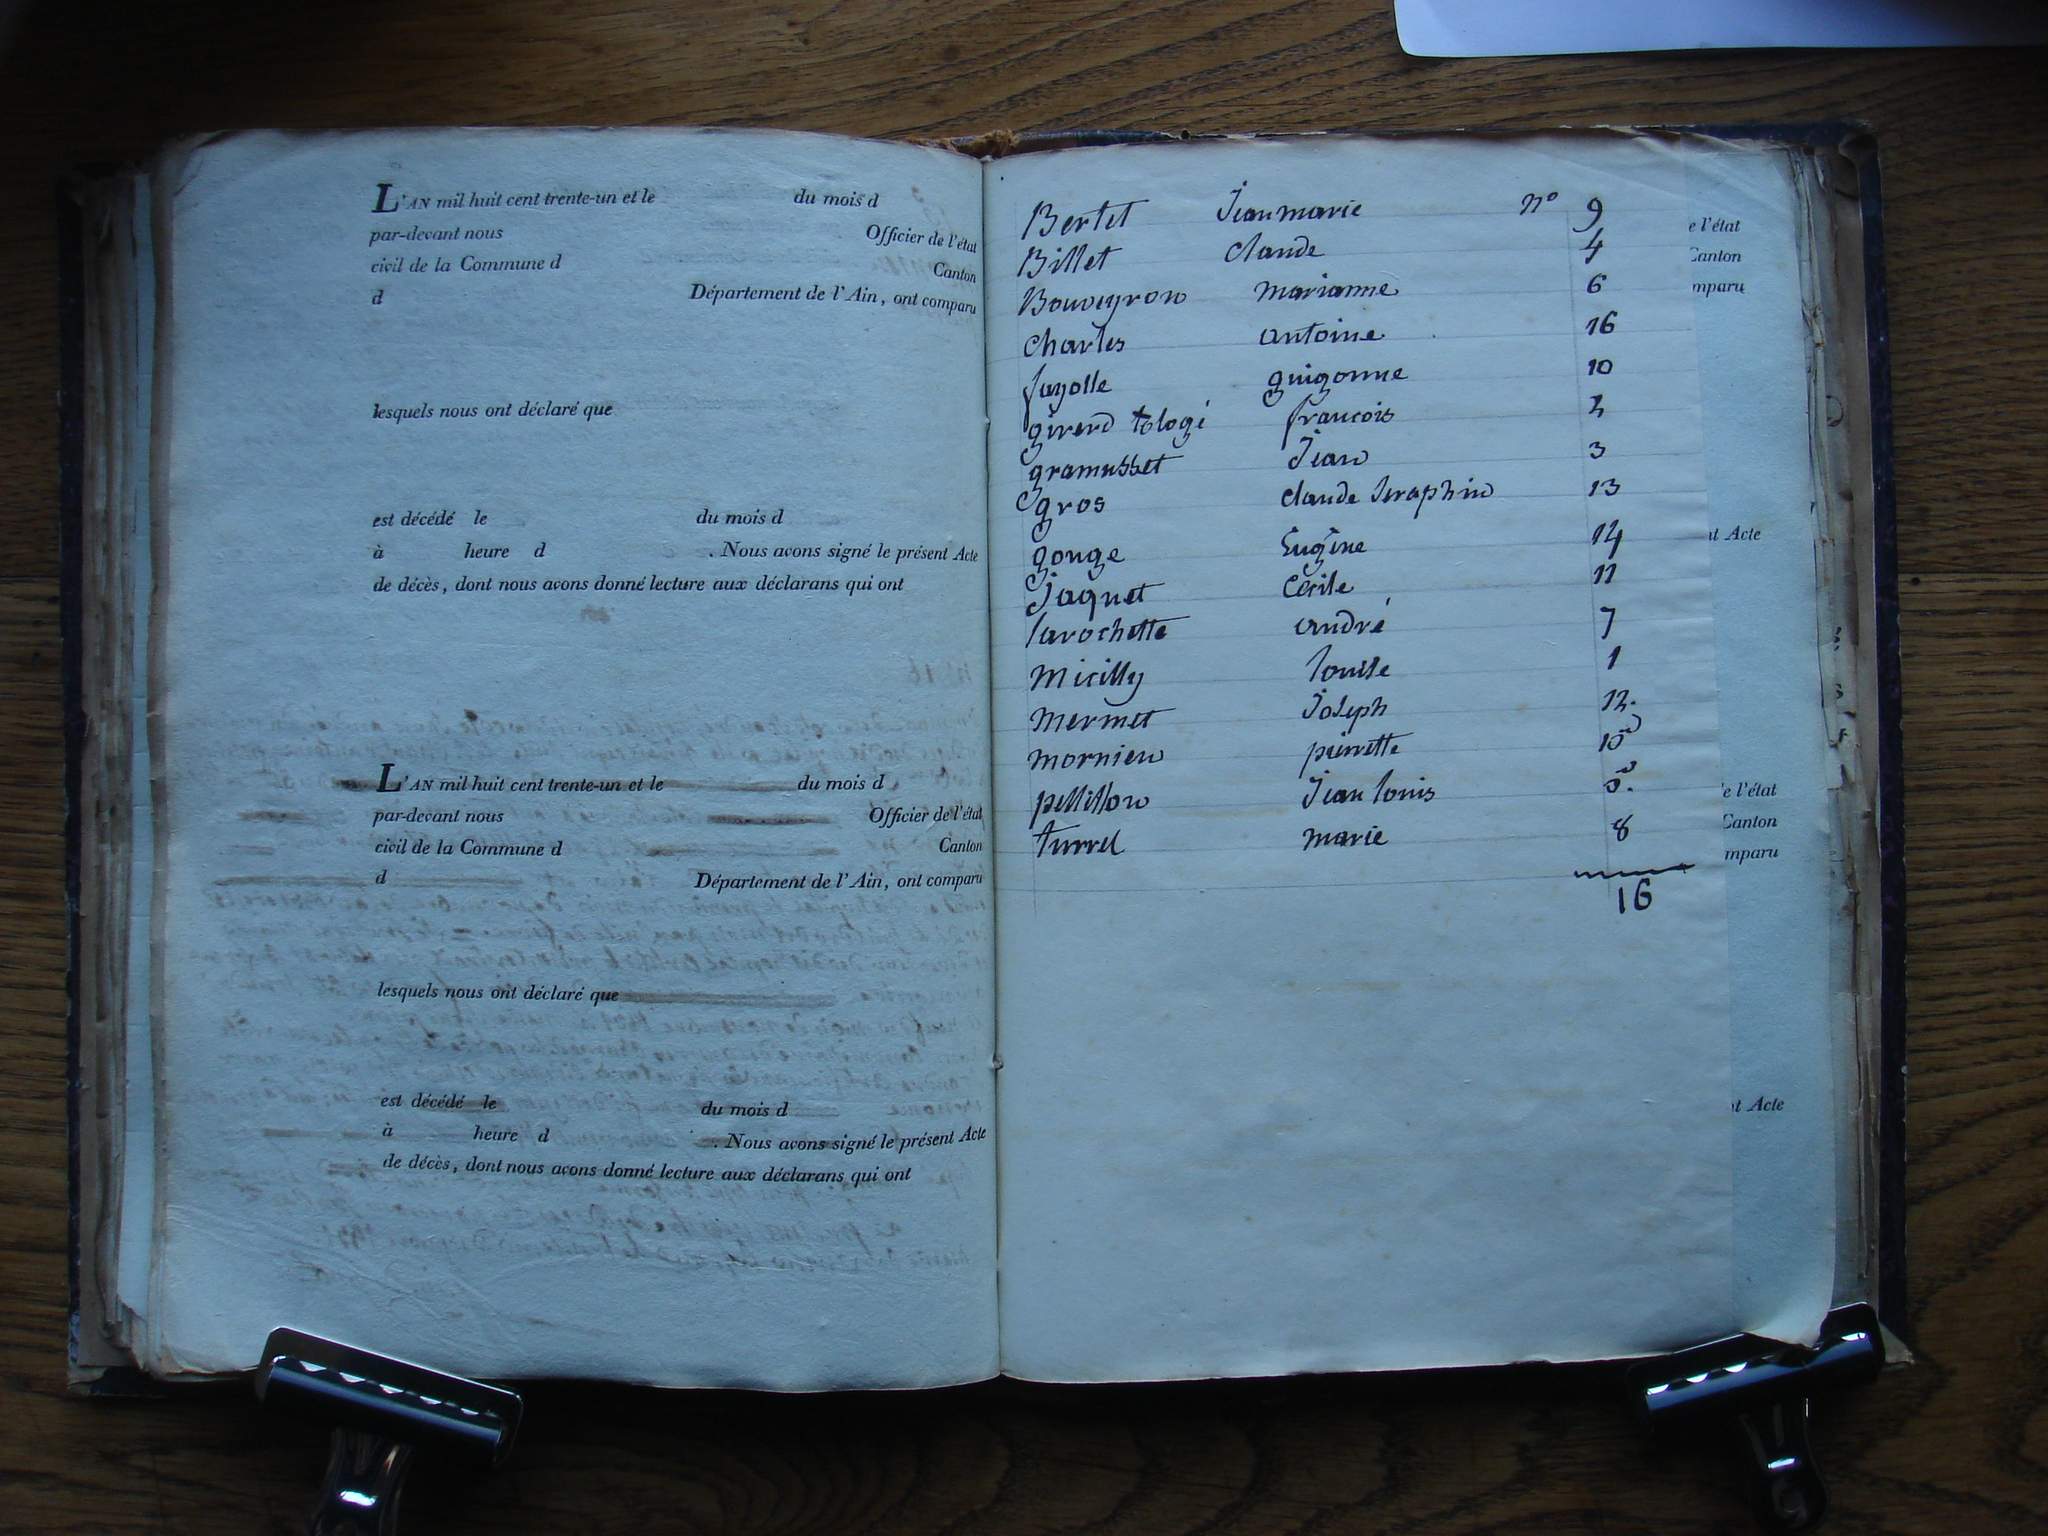 L'AN mil huit cent trente-un et le du mois d
par-devant nous Officier de l'état
civil de la Commune d Canton
d Département de l'Ain, ont comparu
lesquels nous ont déclaré que
est décédé le du mois d
à heure d . Nous avons signé le présent Acte
de décès, dont nous avons donné lecture aux déclarans qui ont
L'AN mil huit cent trente-un et le du mois d
par-devant nous Officier de l'état
civil de la Commune d Canton
d Département de l'Ain, ont comparu
lesquels nous ont déclaré que
est décédé le du mois d
à heure d . Nous avons signé le présent Acte
de décès, dont nous avons donné lecture aux déclarans qui ont
Bertet Jeanmarie n° 9
Billet claude 4
Bouveyron marianne 6
charles antoine 16
fayolle guigonne 10
girerd françois 2
gramusset Jean 3
gros claude seraphin 13
gouge Eugène 14
Jaquet Cécile 11
larochette andré 7
Micilly louise 1
Mermet Joseph 12.
mornieu pierrette 15
pellisson Jean louis 5.
turrel marie 8
16
e l'état
Canton
mparu
nt Acte
e l'état
Canton
mparu
nt Acte